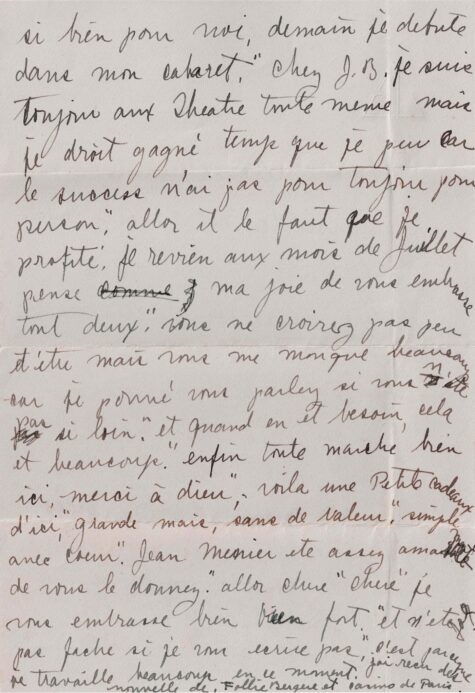 si bien pour moi, demain je debute
dans mon cabaret," chez J. B. je suis
toujour aux Theatre toute meme mais
je droit gagné temp que je peu car
le success n'ai pas pour toujour pour
person," allor il le faut que je
profité. je revien aux mois de Juillet
pense comme ma joie de vous embrasse
tout deux." vous ne croirez pas peu
t'être mais vous me monque beaucoup
car je pouvé vous parley si vous n'été
pas si loin." et quand on et besoin, cela
et beaucoup." enfin toute marche bien
ici, merci à dieu", voila une Petit cadeaux
d'ici," grande mais, sans de valeur", simple
avec coeur". Jean Menier ete assez amable
de vous le donney." allor chere" chere" je
vous embrasse bien bien fort, "et n'ete
pas fache si je vou ecrire pas," c'est parceque
je travaille beaucoup en ce moment. j'ai recu des
nouvelle de, Follie Bergere et Casino de Paris